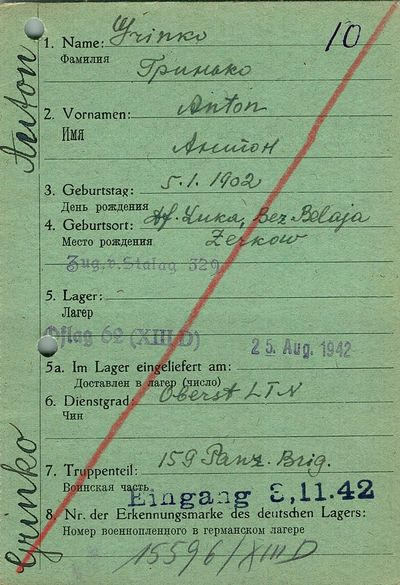 10
1. Name: Grinko
Фамилия
Гринько
2. Vornamen: Anton
Имя
Антон
3. Geburtstag: 5.1.1902
День рождения
4. Geburtsort: Df. Luka, Bez. Belaja
Место рождения Zerkow
Zug. v. Stalag 329
5. Lager:
Лагерь
Oflag 62 (XIII D) 25. Aug. 1942
5a. Im Lager eingeliefert am:
Доставлен в лагерь (число)
6. Dienstgrad: Oberst LTN
Чин
7. Truppenteil: 159 Panz. Brig.
Воинская часть
Eingang 3.11.42
8. Nr. der Erkennungsmarke des deutschen Lagers:
Номер военнопленного в германском лагере
15596/XIII D
Grinko Anton